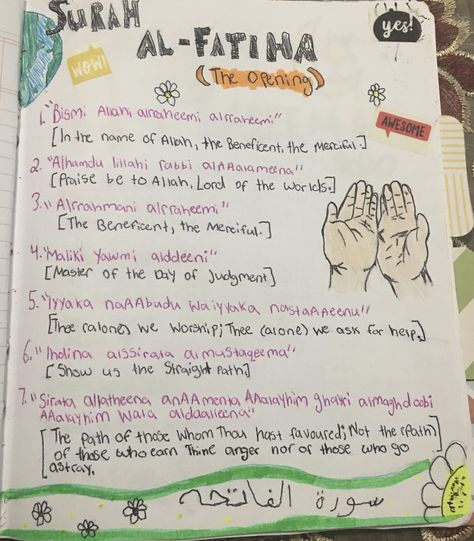 SURAH
AL-FATIHA
(The Opening)
yes!
WOW!
AWESOME
1. "Bismi Allahi alraheemi alrraheemi"
[In the name of Allah, the Beneficent, the Merciful.]
2. "Alhamdu lillahi rabbi alAAalameena"
[Praise be to Allah, Lord of the Worlds.]
3. "Alrrahmani alrraheemi"
[The Beneficent, the Merciful.]
4. "Maliki yawmi alddeeni"
[Master of the Day of Judgment]
5. "Iyyaka naAAbudu waiyyaka nastaAAeenu"
[Thee (alone) we worship; Thee (alone) we ask for help.]
6. "Ihdina alssirata almustaqeema"
[Show us the straight path]
7. "Sirata allatheena anAAamta AAalayhim ghayri almaghdoobi
AAalayhim wala alddalleena"
[The path of those whom Thou hast favoured; Not the (path)
of those who earn Thine anger nor of those who go
astray.
سورة الفاتحه